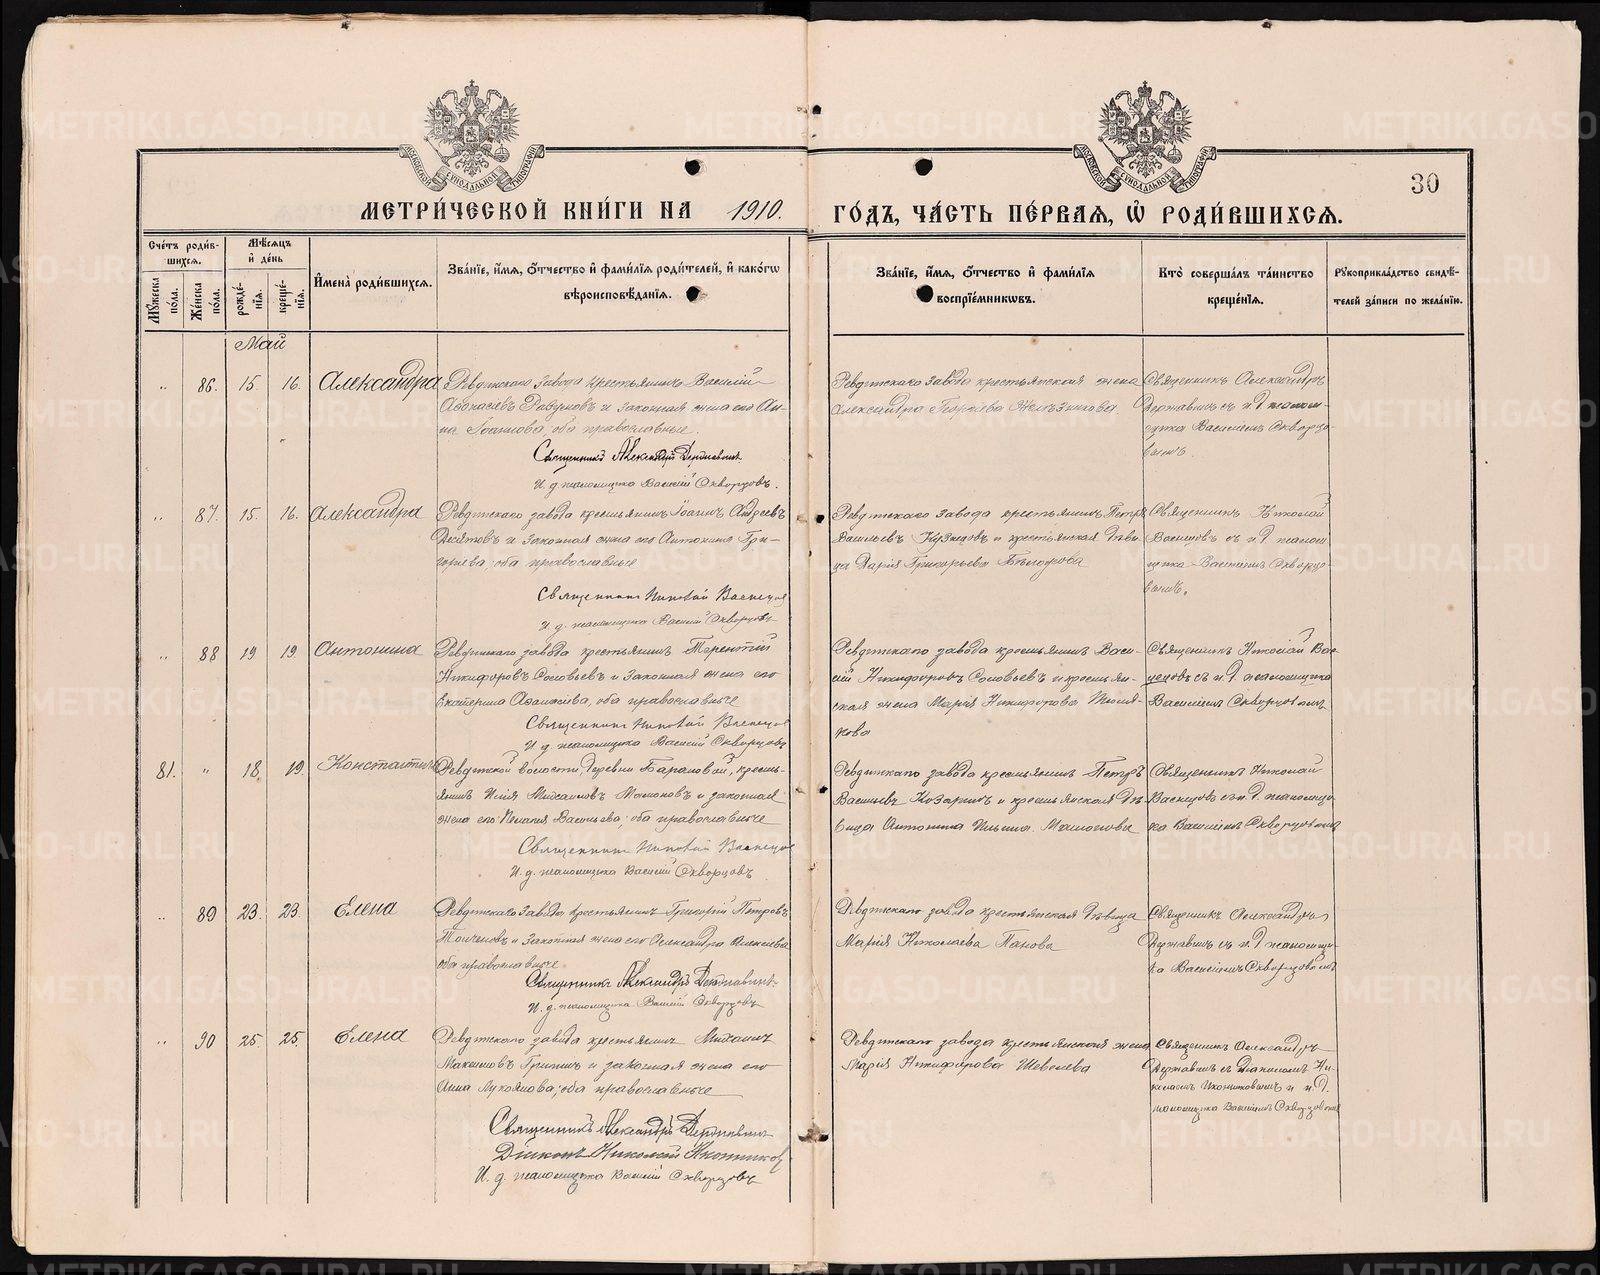 МОСКОВСКОЙ СѴНОДАЛЬНОЙ ТИПОГРАФІИ
МОСКОВСКОЙ СѴНОДАЛЬНОЙ ТИПОГРАФІИ
30
МЕТРИ́ЧЕСКОЙ КНИ́ГИ НА 1910. ГО́ДЪ, ЧА́СТЬ ПЕ́РВАЯ, Ѽ РОДИ́ВШИХСЯ.
Сче́тъ роди́в-
шихся.
Мꙋ́жеска по́ла.
Же́нска по́ла.
Мѣ́сяцъ и҆ де́нь
рожде́-нїя.
креще́-нїя.
И҆мена̀ роди́вшихся.
Зва́нїе, и҆́мя, ѻ҆́тчество и҆ фами́лїя роди́телей, и҆ како́гѡ
вѣроисповѣ́данїя.
Зва́нїе, и҆́мя, ѻ҆́тчество и҆ фами́лїя
воспрїе́мникѡвъ.
Кто̀ соверша́лъ та́инство
креще́нїя.
Рꙋкоприкла́дство свидѣ́-
телей за́писи по жела́нїю.
Май
„ 86. 15 16. Александра
Ревдинскаго завода крестьянинъ Василій
и законная жена его Ан-
на Іоаннова, оба православные.
Священникъ Александръ Державинъ
И. д. псаломщика Василій Скворцовъ.
Ревдинскаго завода крестьянская жена
Александра Георгіева
Священникъ Александръ
Державинъ съ и. д. псалом-
щика Василіемъ Скворцо-
вымъ.
„ 87. 15. 16. Александра
Ревдинскаго завода крестьянинъ Іоаннъ Андреевъ
Десятовъ и законная жена его Антонина Гри-
горьева, оба православные
Священникъ Николай Васнецов
И. д. псаломщика Василій Скворцовъ
Ревдинскаго завода крестьянинъ Петръ
Васильевъ Кузнецовъ и крестьянская дѣви-
ца Дарія Григорьева
Священникъ Николай
Васнецовъ съ и. д. псалом-
щика Василіемъ Скворцо-
вымъ.
„ 88 19 19 Антонина
Ревдинскаго завода крестьянинъ Терентій
Никифоровъ Соловьевъ и законная жена его
Екатерина, оба православные
Священникъ Николай Васнецов
И. д. псаломщика Василій Скворцовъ
Ревдинскаго завода крестьянинъ Васи-
лій Никифоровъ Соловьевъ и крестьян-
ская жена Марія Никифорова
Священникъ Николай Вас-
нецовъ съ и. д. псаломщика
Василіемъ Скворцовымъ
81. „ 18. 19. Константинъ
Ревдинской волости, деревни Барановой, кресть-
янинъ Илія Михайловъ и законная
жена его Пелагія Васильева, оба православные
Священникъ Николай Васнецов
И. д. псаломщика Василій Скворцовъ.
Ревдинскаго завода крестьянинъ Петръ
Васильевъ Козыринъ и крестьянская дѣ-
вица Антонина Ильина
Священникъ Николай
Васнецовъ съ и. д. псаломщи-
ка Василіемъ Скворцовымъ
„ 89 23. 23 Елена
Ревдинскаго завода крестьянинъ Григорій Петровъ
и законная жена его Александра Алексѣева
оба православные.
Священникъ Александръ Державинъ
И. д. псаломщика Василій Скворцовъ
Ревдинскаго завода крестьянская дѣвица
Марія Николаева Панова
Священникъ Александръ
Державинъ съ и. д. псаломщи-
ка Василіемъ Скворцовымъ
„ 90 25. 25. Елена
Ревдинскаго завода крестьянинъ Михаилъ
Максимовъ и законная жена его
Анна Лукоянова, оба православные
Священникъ Александръ Державинъ
Діаконъ Николай Иконников
И. д. псаломщика Василій Скворцовъ
Ревдинскаго завода крестьянская жена
Марія Никифорова Шевелева
Священникъ Александръ
Державинъ съ діакономъ Ни-
колаемъ Иконниковымъ и и. д.
псаломщика Василіемъ Скворцовымъ
METRIKI.GASO-URAL.RU